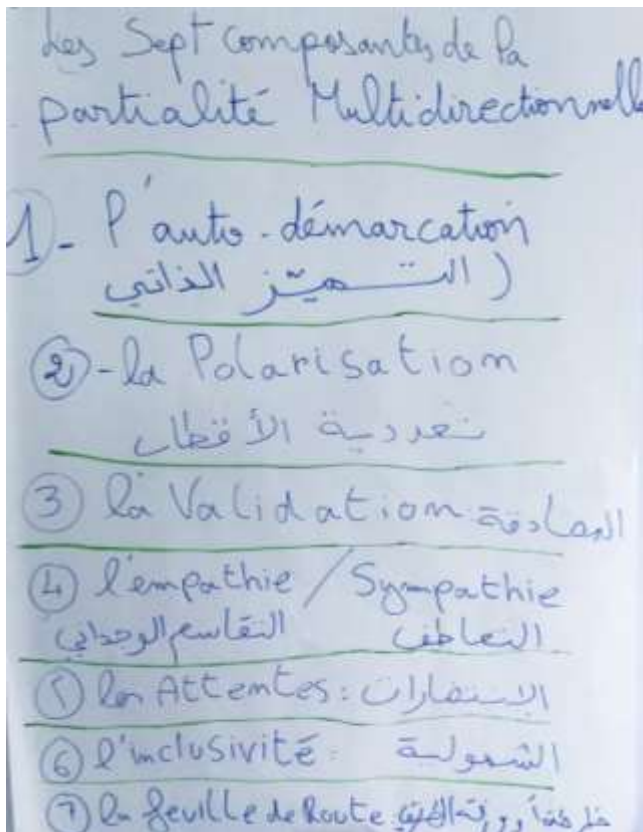 Les Sept composantes de la
partialité Multidirectionnelle
1- l'auto-démarcation
(التميّز الذاتي
2 - la Polarisation
تعددية الأقطاب
3 la Validation: المصادقة
4 l'empathie / Sympathie
التقاسم الوجداني التعاطف
5 les Attentes: الانتظارات
6 l'inclusivité: الشمولية
7 la feuille de Route